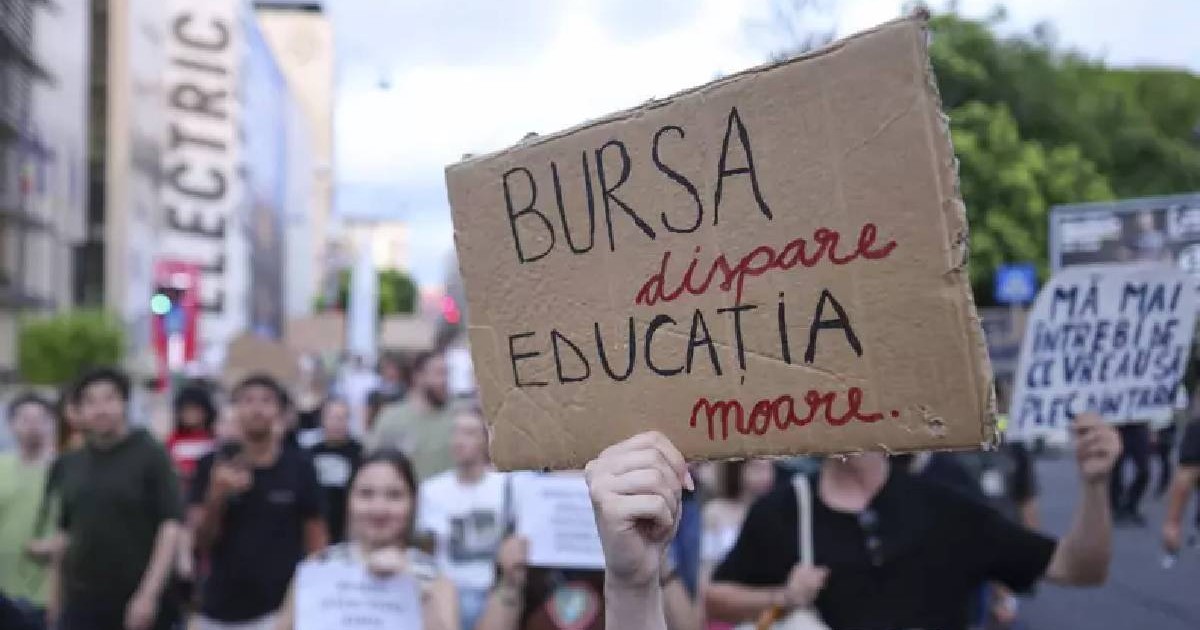 ELECTRIC
BURSA
dispare
EDUCAȚIA
moare.
MĂ MAI
ÎNTREBI DE
CE VREAU SĂ
PLEC ÎN ȚARĂ